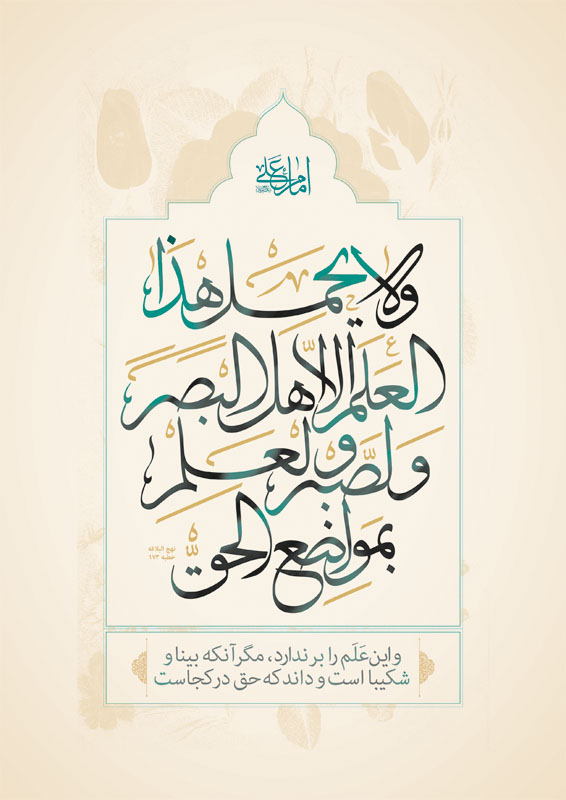 امام علی
ولا یحمل هذا
العَلَم الّا اهل البَصَر
وَالصَّبر والعلم
بمواضع الحقّ
نهج البلاغه
خطبه ۱۷۳
و این عَلَم را برندارد، مگر آنکه بینا و
شکیبا است و داند که حق در کجاست